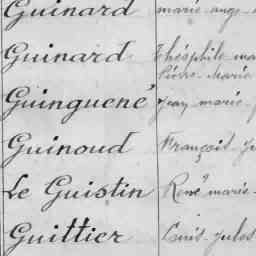 Guinard marie ange
Guinard Théophile ma
Pierre Marie
Guinguené Jean marie
Guinoud François Ju
Le Guistin René marie
Guittier Louis Jules